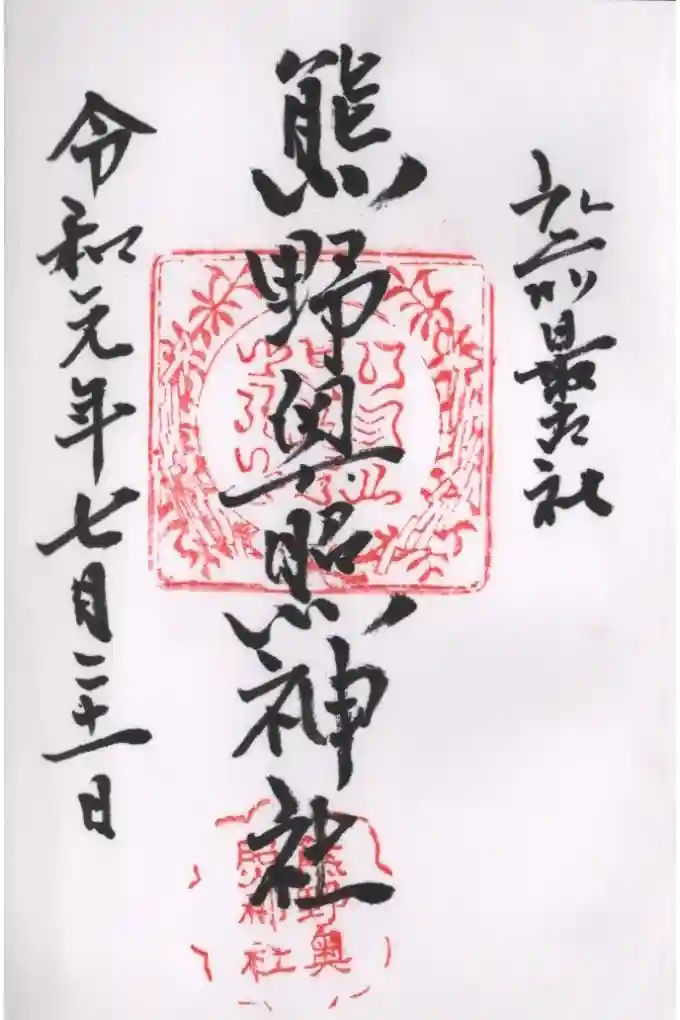 最古社
熊野奥照神社
令和元年七月二十一日
熊野奥
照神社